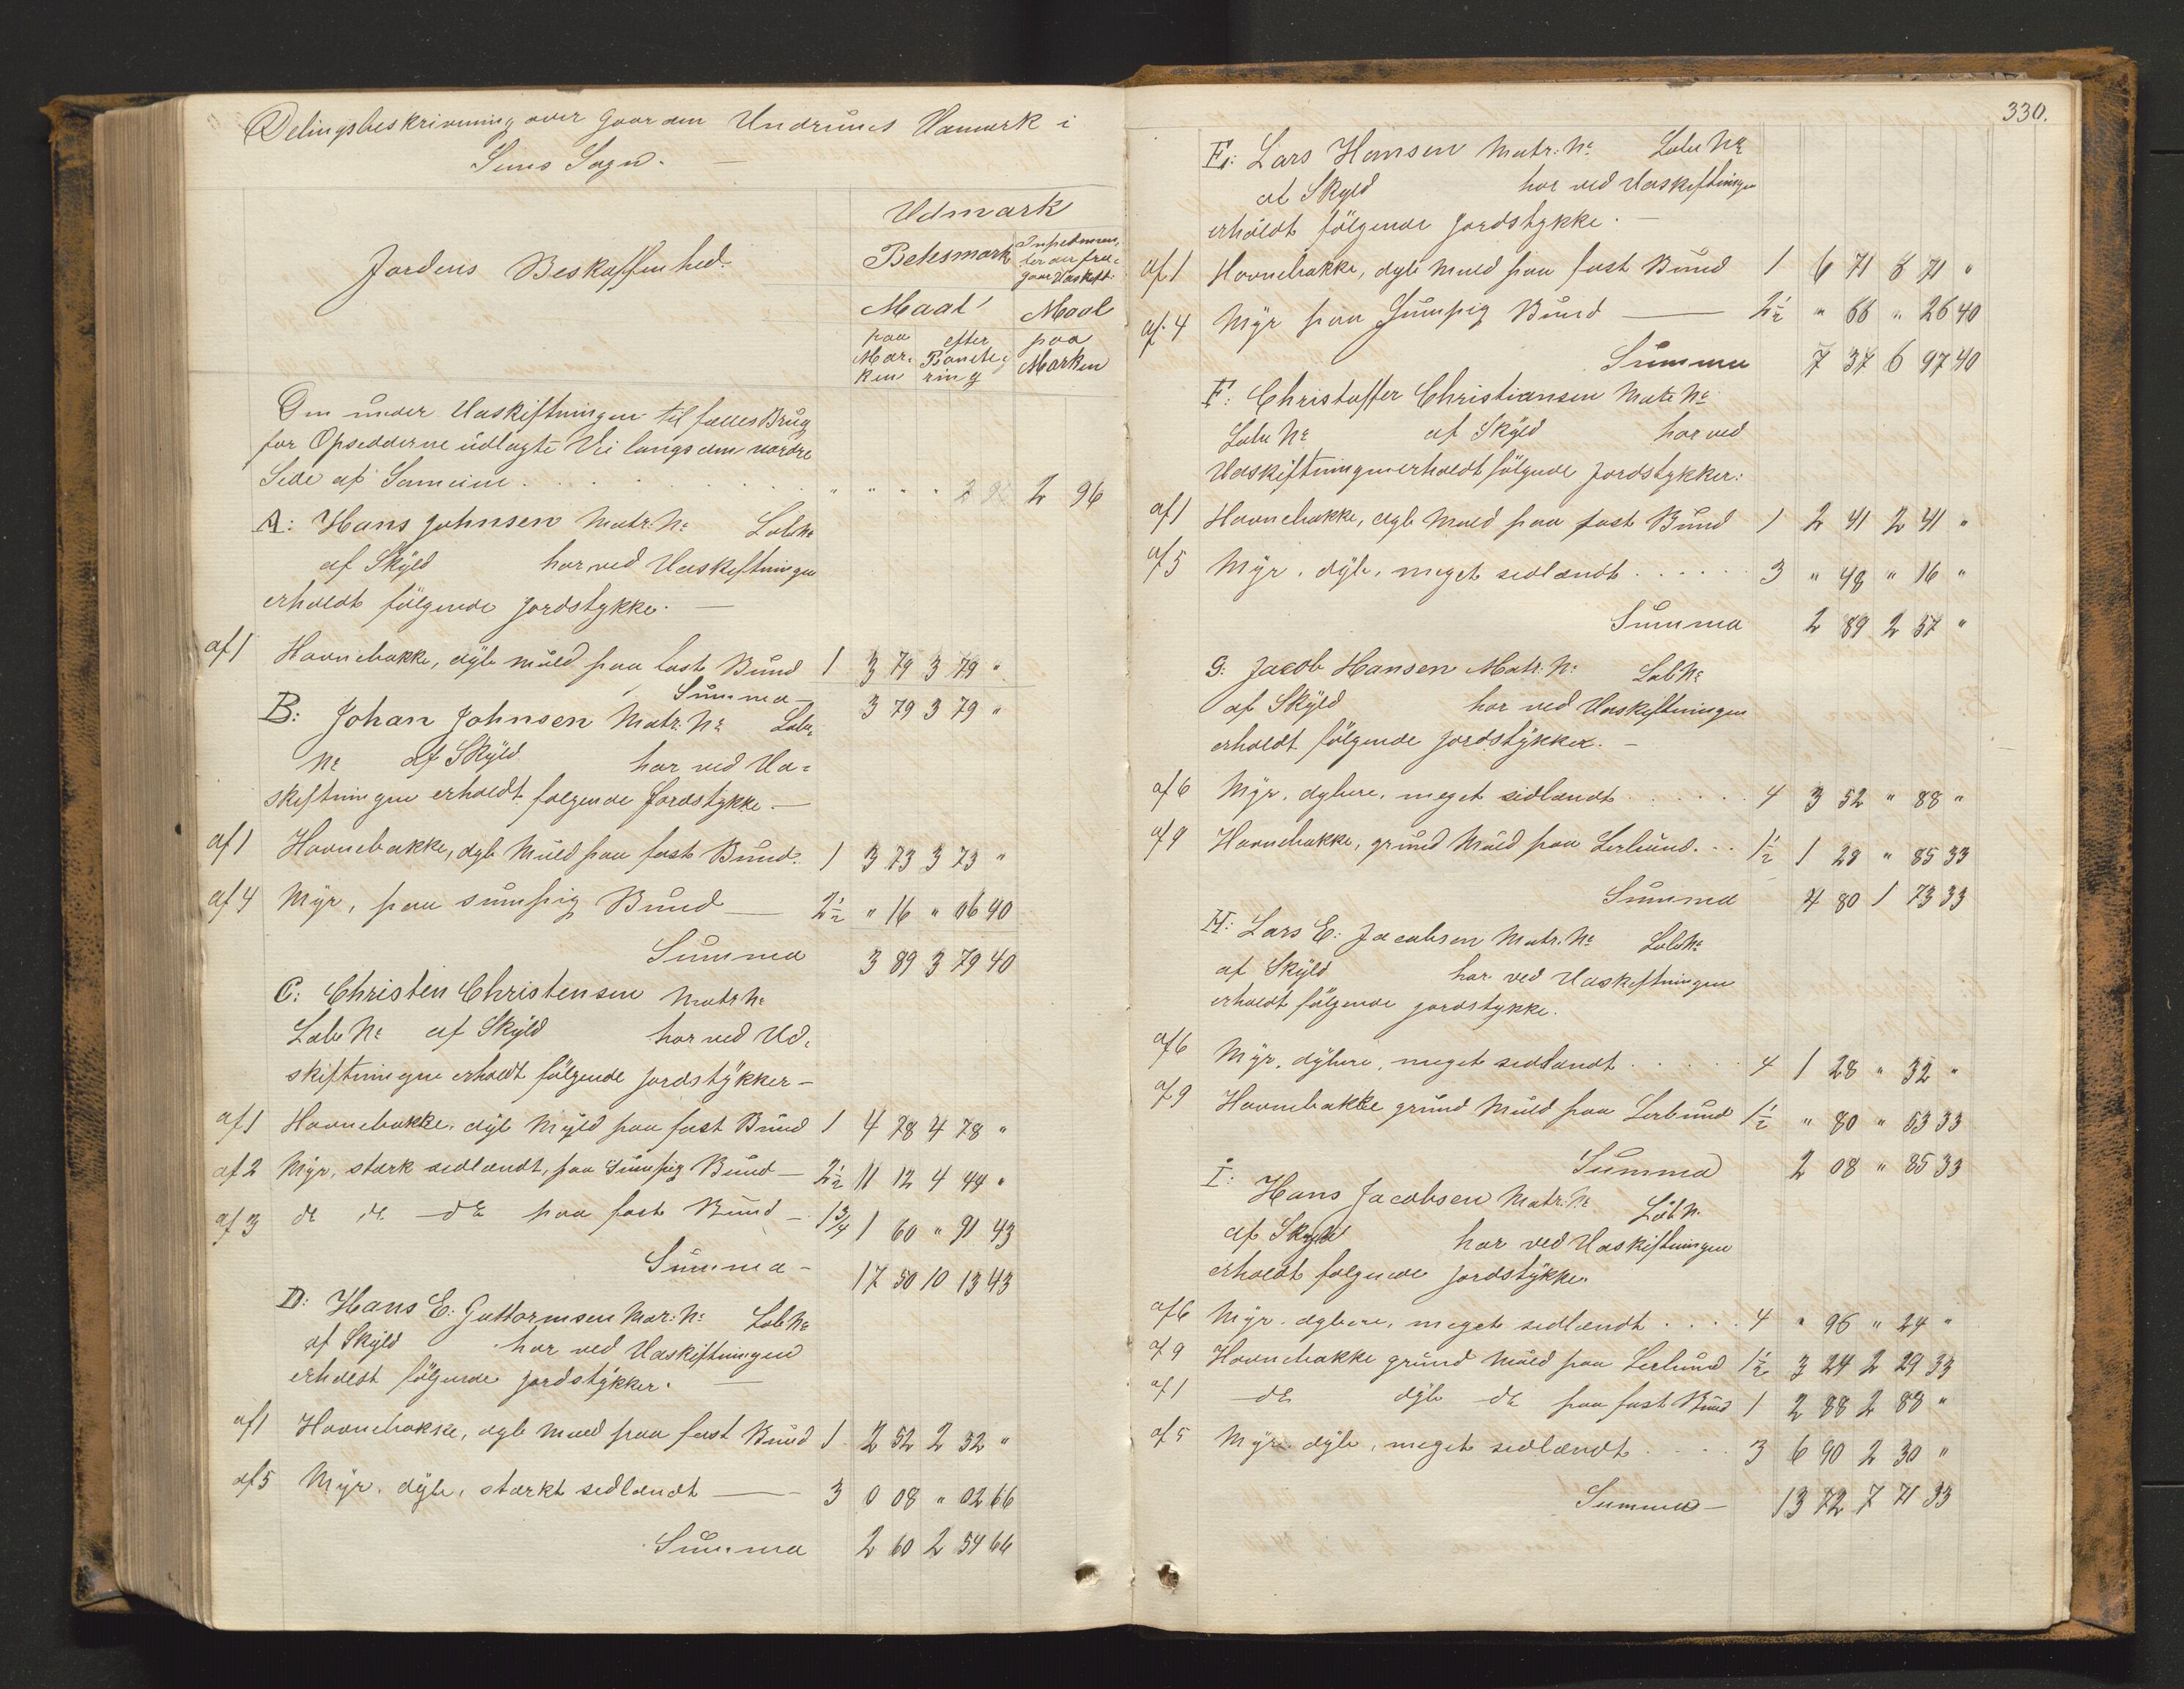 Delingsbeskrivning over Gaarden Undrums Havnerk i
Sems Sogn. —
Jordens Beskaffenhed.
Udmark
Beitesmark
Inpedimen-
ter der fra-
gaar Udskift.
Maal
Maal
paa efter paa
Mar- Bonite- Marken
ken ring
Den under Udskiftningen til fælles Brug
for Opsidderne udlagte Vei langs den nordre
Side af Sameiet . . . . . . " " " " 2 96
A: Hans Johnsen Matr: No Løb No
af Skyld har ved Udskiftningen
erholdt følgende Jordstykke. —
af 1 Havnebakke, dyb muld paa fast Bund 1 3 79 3 79 "
Summa — 3 79 3 79 "
B: Johan Johnsen Matr: No Løbe-
No af Skyld har ved Ud-
skiftningen erholdt følgende Jordstykke —
af 1 Havnebakke, dyb Muld paa fast Bund. 1 3 73 3 73 "
af 4 Myr, paa sumpig Bund — 2½ " 16 " 06 40
Summa 3 89 3 79 40
C: Christen Christensen Matr No
Løbe No af Skyld har ved Ud-
skiftningen erholdt følgende Jordstykker —
af 1 Havnebakke, dyb Muld paa fast Bund 1 4 78 4 78 "
af 2 Myr, stærk sidlændt, paa Sumpig Bund — 2½ 11 12 4 44 "
af 3 do do do paa fast Bund — 1¾ 1 60 " 91 43
Summa — 17 50 10 13 43
D: Hans E: Guttormsen Mar: No Løb No
af Skyld har ved Udskiftningen
erholdt følgende Jordstykker. —
af 1 Havnebakke, dyb Muld paa fast Bund 1 2 52 2 52 "
af 5 Myr, dyb, stærkt sidlændt — 3 0 08 " 02 66
Summa 2 60 2 54 66
330.
E: Lars Hansen Matr: No Løbe No
af Skyld har ved Udskiftningen
erholdt følgende Jordstykke. —
af 1 Havnebakke, dyb Muld paa fast Bund 1 6 71 6 71 "
af 4 Myr paa Sumpig Bund — 2½ " 66 " 26 40
Summa 7 37 6 97 40
F: Christoffer Christiansen Matr No
Løbe No af Skyld har ved
Udskiftningen erholdt følgende Jordstykker:
af 1 Havnebakke, dyb Muld paa fast Bund 1 2 41 2 41 "
af 5 Myr, dyb, meget sidlændt . . . . . 3 " 48 " 16 "
Summa 2 89 2 57 "
G: Jacob Hansen Matr: No Løb No
af Skyld har ved Udskiftningen
erholdt følgende Jordstykker. —
af 6 Myr, dybere, meget sidlændt . . . . . 4 3 52 " 88 "
af 9 Havnebakke, grund Muld paa Lerbund. . . 1½ 1 28 " 85 33
Summa 4 80 1 73 33
H: Lars E: Jacobsen Matr. No Løb No
af Skyld har ved Udskiftningen
erholdt følgende Jordstykke.
af 6 Myr, dybere, meget sidlændt . . . . . 4 1 28 " 32 "
af 9 Havnebakke grund Muld paa Lerbund 1½ " 80 " 53 33
Summa 2 08 " 85 33
I: Hans Jacobsen Matr: No Løb No
af Skyld har ved Udskiftningen
erholdt følgende Jordstykke.
af 6 Myr, dybere, meget sidlændt . . . . 4 " 96 " 24 "
af 9 Havnebakke grund Muld paa Lerbund 1½ 3 24 2 29 33
af 1 do dyb do paa fast Bund 1 2 88 2 88 "
af 5 Myr dyb, meget sidlændt . . . . 3 6 90 2 30 "
Summa — 13 72 7 71 33